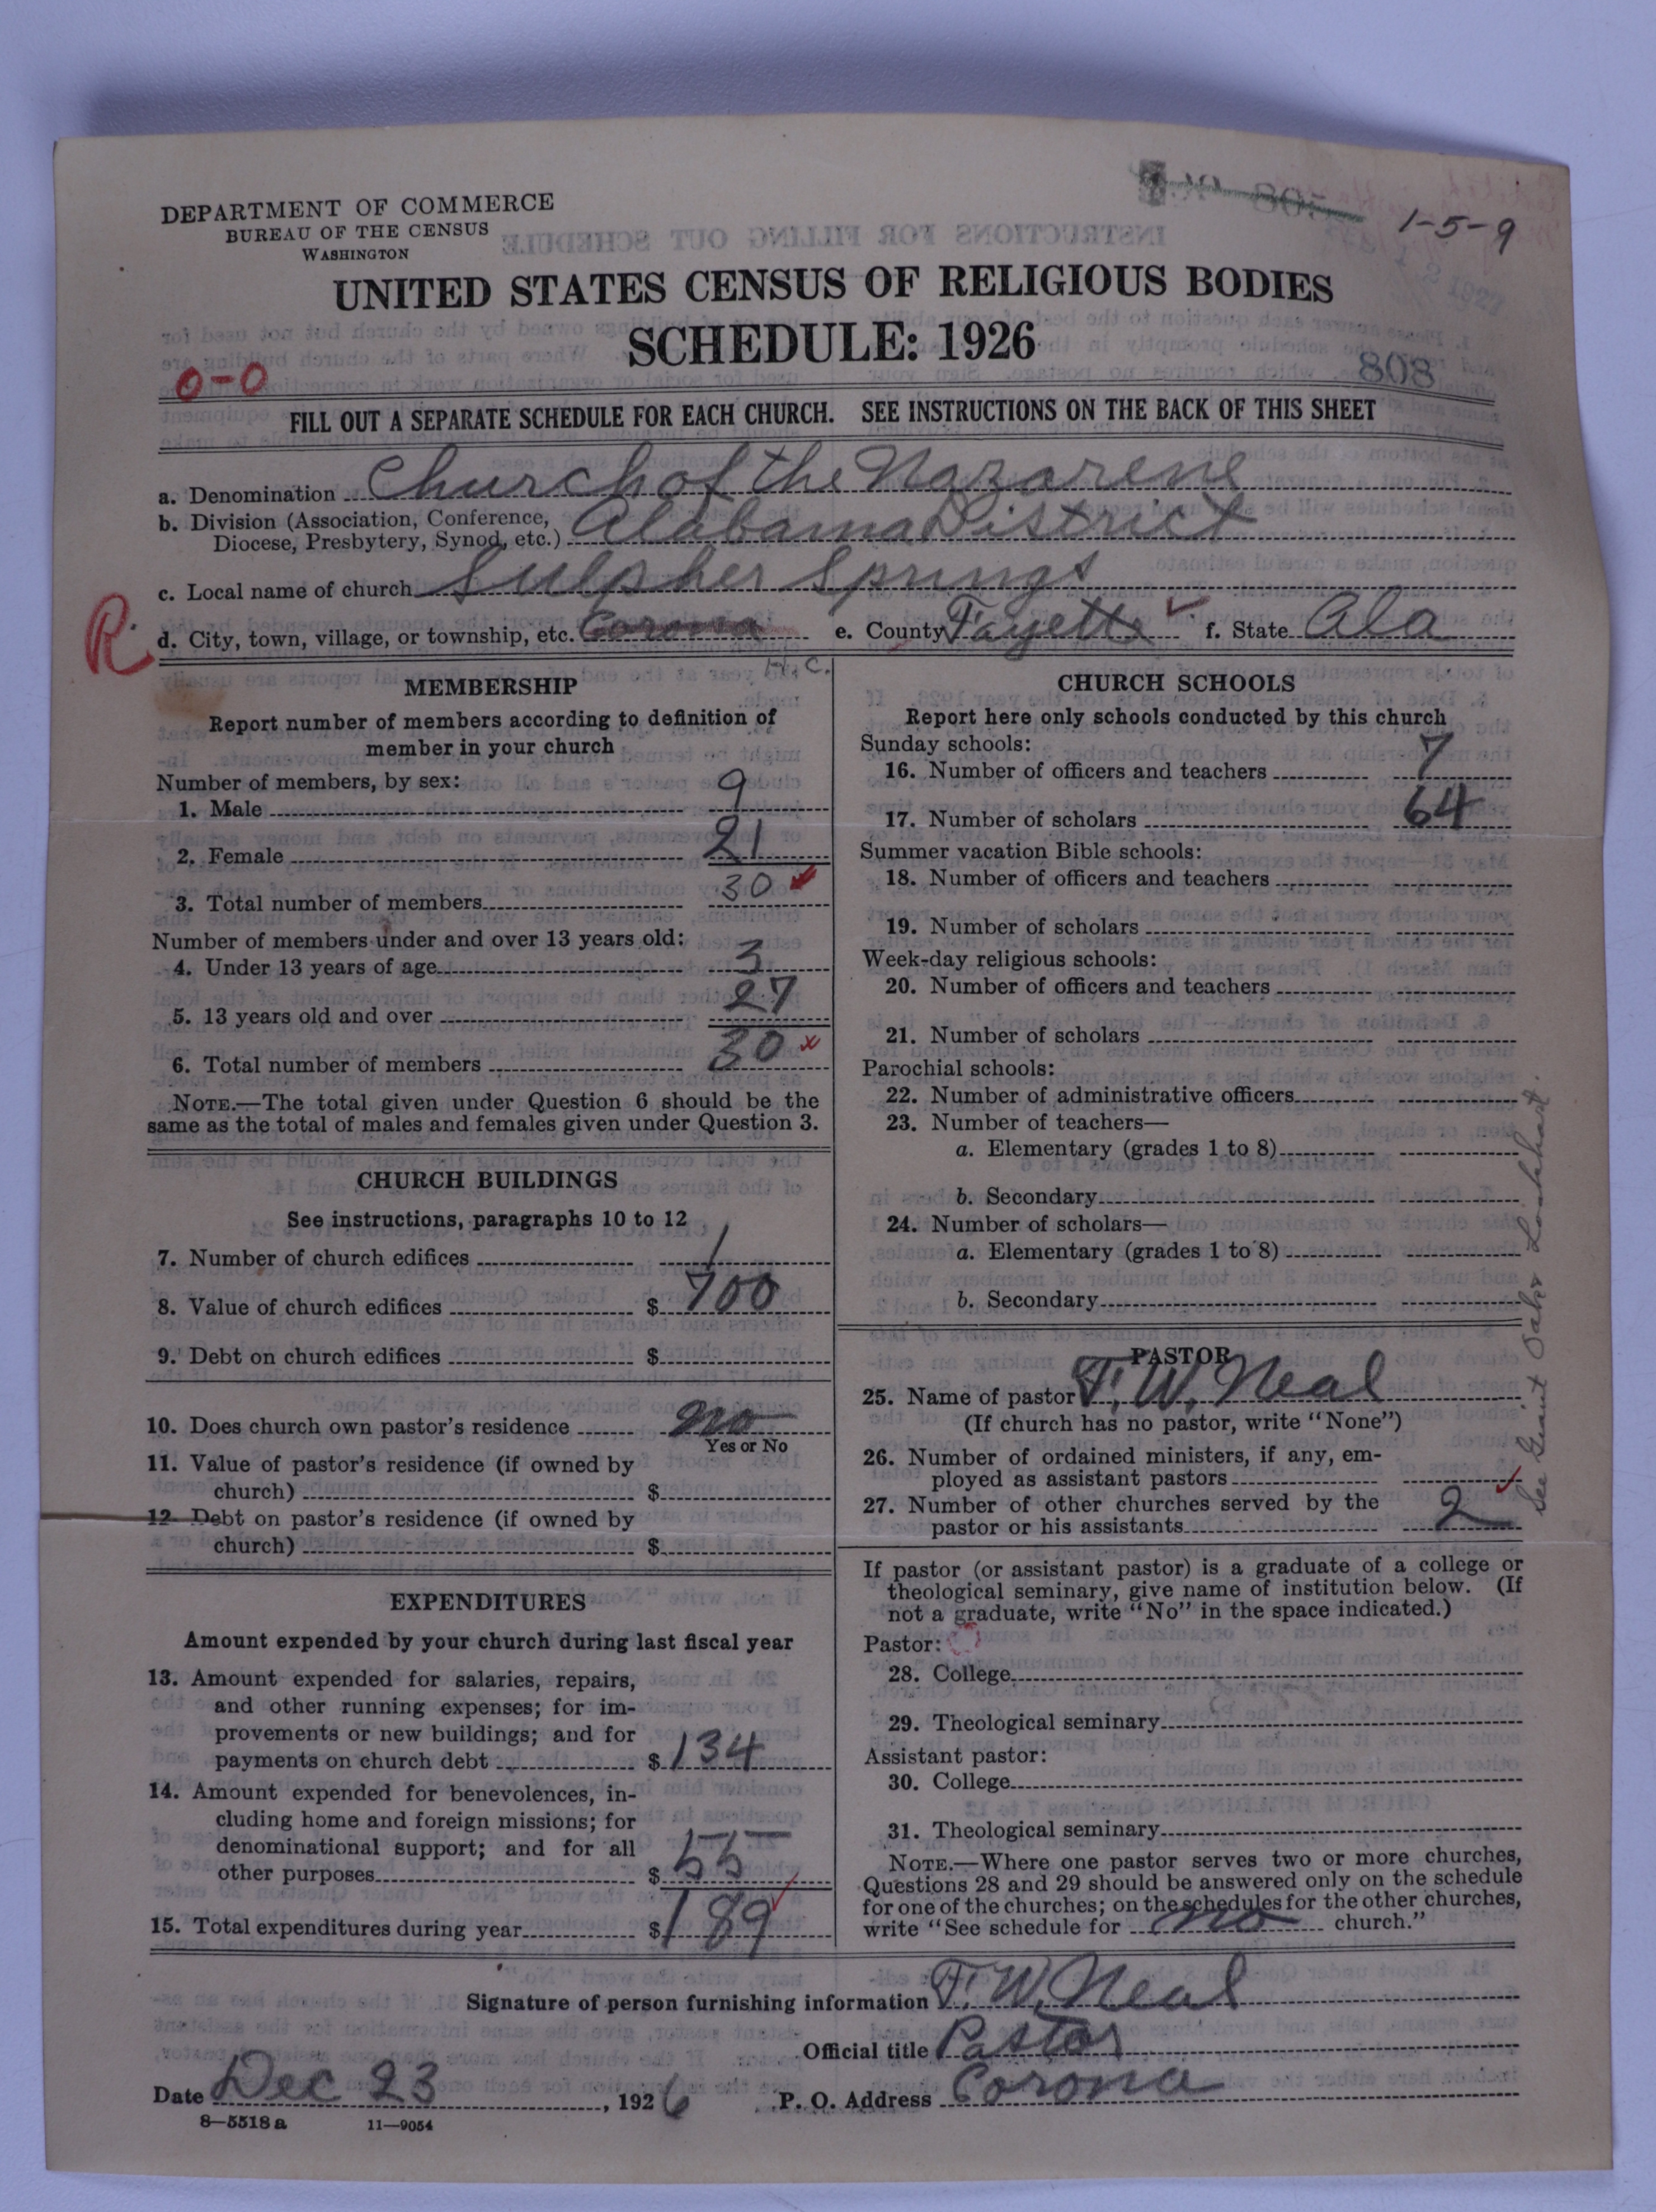 1-5-9
DEPARTMENT OF COMMERCE
BUREAU OF THE CENSUS
WASHINGTON
UNITED STATES CENSUS OF RELIGIOUS BODIES
SCHEDULE: 1926
808
0-0
FILL OUT A SEPARATE SCHEDULE FOR EACH CHURCH. SEE INSTRUCTIONS ON THE BACK OF THIS SHEET
a. Denomination Church of the Nazarene
b. Division (Association, Conference,
Diocese, Presbytery, Synod, etc.) Alabama District
c. Local name of church Sulpher Springs
R d. City, town, village, or township, etc. Corona e. County Fayette f. State Ala
H. C.
MEMBERSHIP
Report number of members according to definition of
member in your church
Number of members, by sex:
1. Male 9
2. Female 21
3. Total number of members 30
Number of members under and over 13 years old:
4. Under 13 years of age 3
5. 13 years old and over 27
6. Total number of members 30
NOTE.—The total given under Question 6 should be the
same as the total of males and females given under Question 3.
CHURCH BUILDINGS
See instructions, paragraphs 10 to 12
7. Number of church edifices 1
8. Value of church edifices $ 700
9. Debt on church edifices $
10. Does church own pastor's residence no
Yes or No
11. Value of pastor's residence (if owned by
church) $
12. Debt on pastor's residence (if owned by
church) $
EXPENDITURES
Amount expended by your church during last fiscal year
13. Amount expended for salaries, repairs,
and other running expenses; for im-
provements or new buildings; and for
payments on church debt $ 134
14. Amount expended for benevolences, in-
cluding home and foreign missions; for
denominational support; and for all
other purposes $ 55
15. Total expenditures during year $ 189
CHURCH SCHOOLS
Report here only schools conducted by this church
Sunday schools:
16. Number of officers and teachers 7
17. Number of scholars 64
Summer vacation Bible schools:
18. Number of officers and teachers
19. Number of scholars
Week-day religious schools:
20. Number of officers and teachers
21. Number of scholars
Parochial schools:
22. Number of administrative officers
23. Number of teachers—
a. Elementary (grades 1 to 8)
b. Secondary
24. Number of scholars—
a. Elementary (grades 1 to 8)
b. Secondary
PASTOR
25. Name of pastor F. W. Neal
(If church has no pastor, write "None")
26. Number of ordained ministers, if any, em-
ployed as assistant pastors
27. Number of other churches served by the
pastor or his assistants 2
If pastor (or assistant pastor) is a graduate of a college or
theological seminary, give name of institution below. (If
not a graduate, write "No" in the space indicated.)
Pastor:
28. College
29. Theological seminary
Assistant pastor:
30. College
31. Theological seminary
NOTE.—Where one pastor serves two or more churches,
Questions 28 and 29 should be answered only on the schedule
for one of the churches; on the schedules for the other churches,
write "See schedule for no church."
See
Signature of person furnishing information F. W. Neal
Official title Pastor
Date Dec 23, 1926 P. O. Address Corona
8—5518 a 11—9054